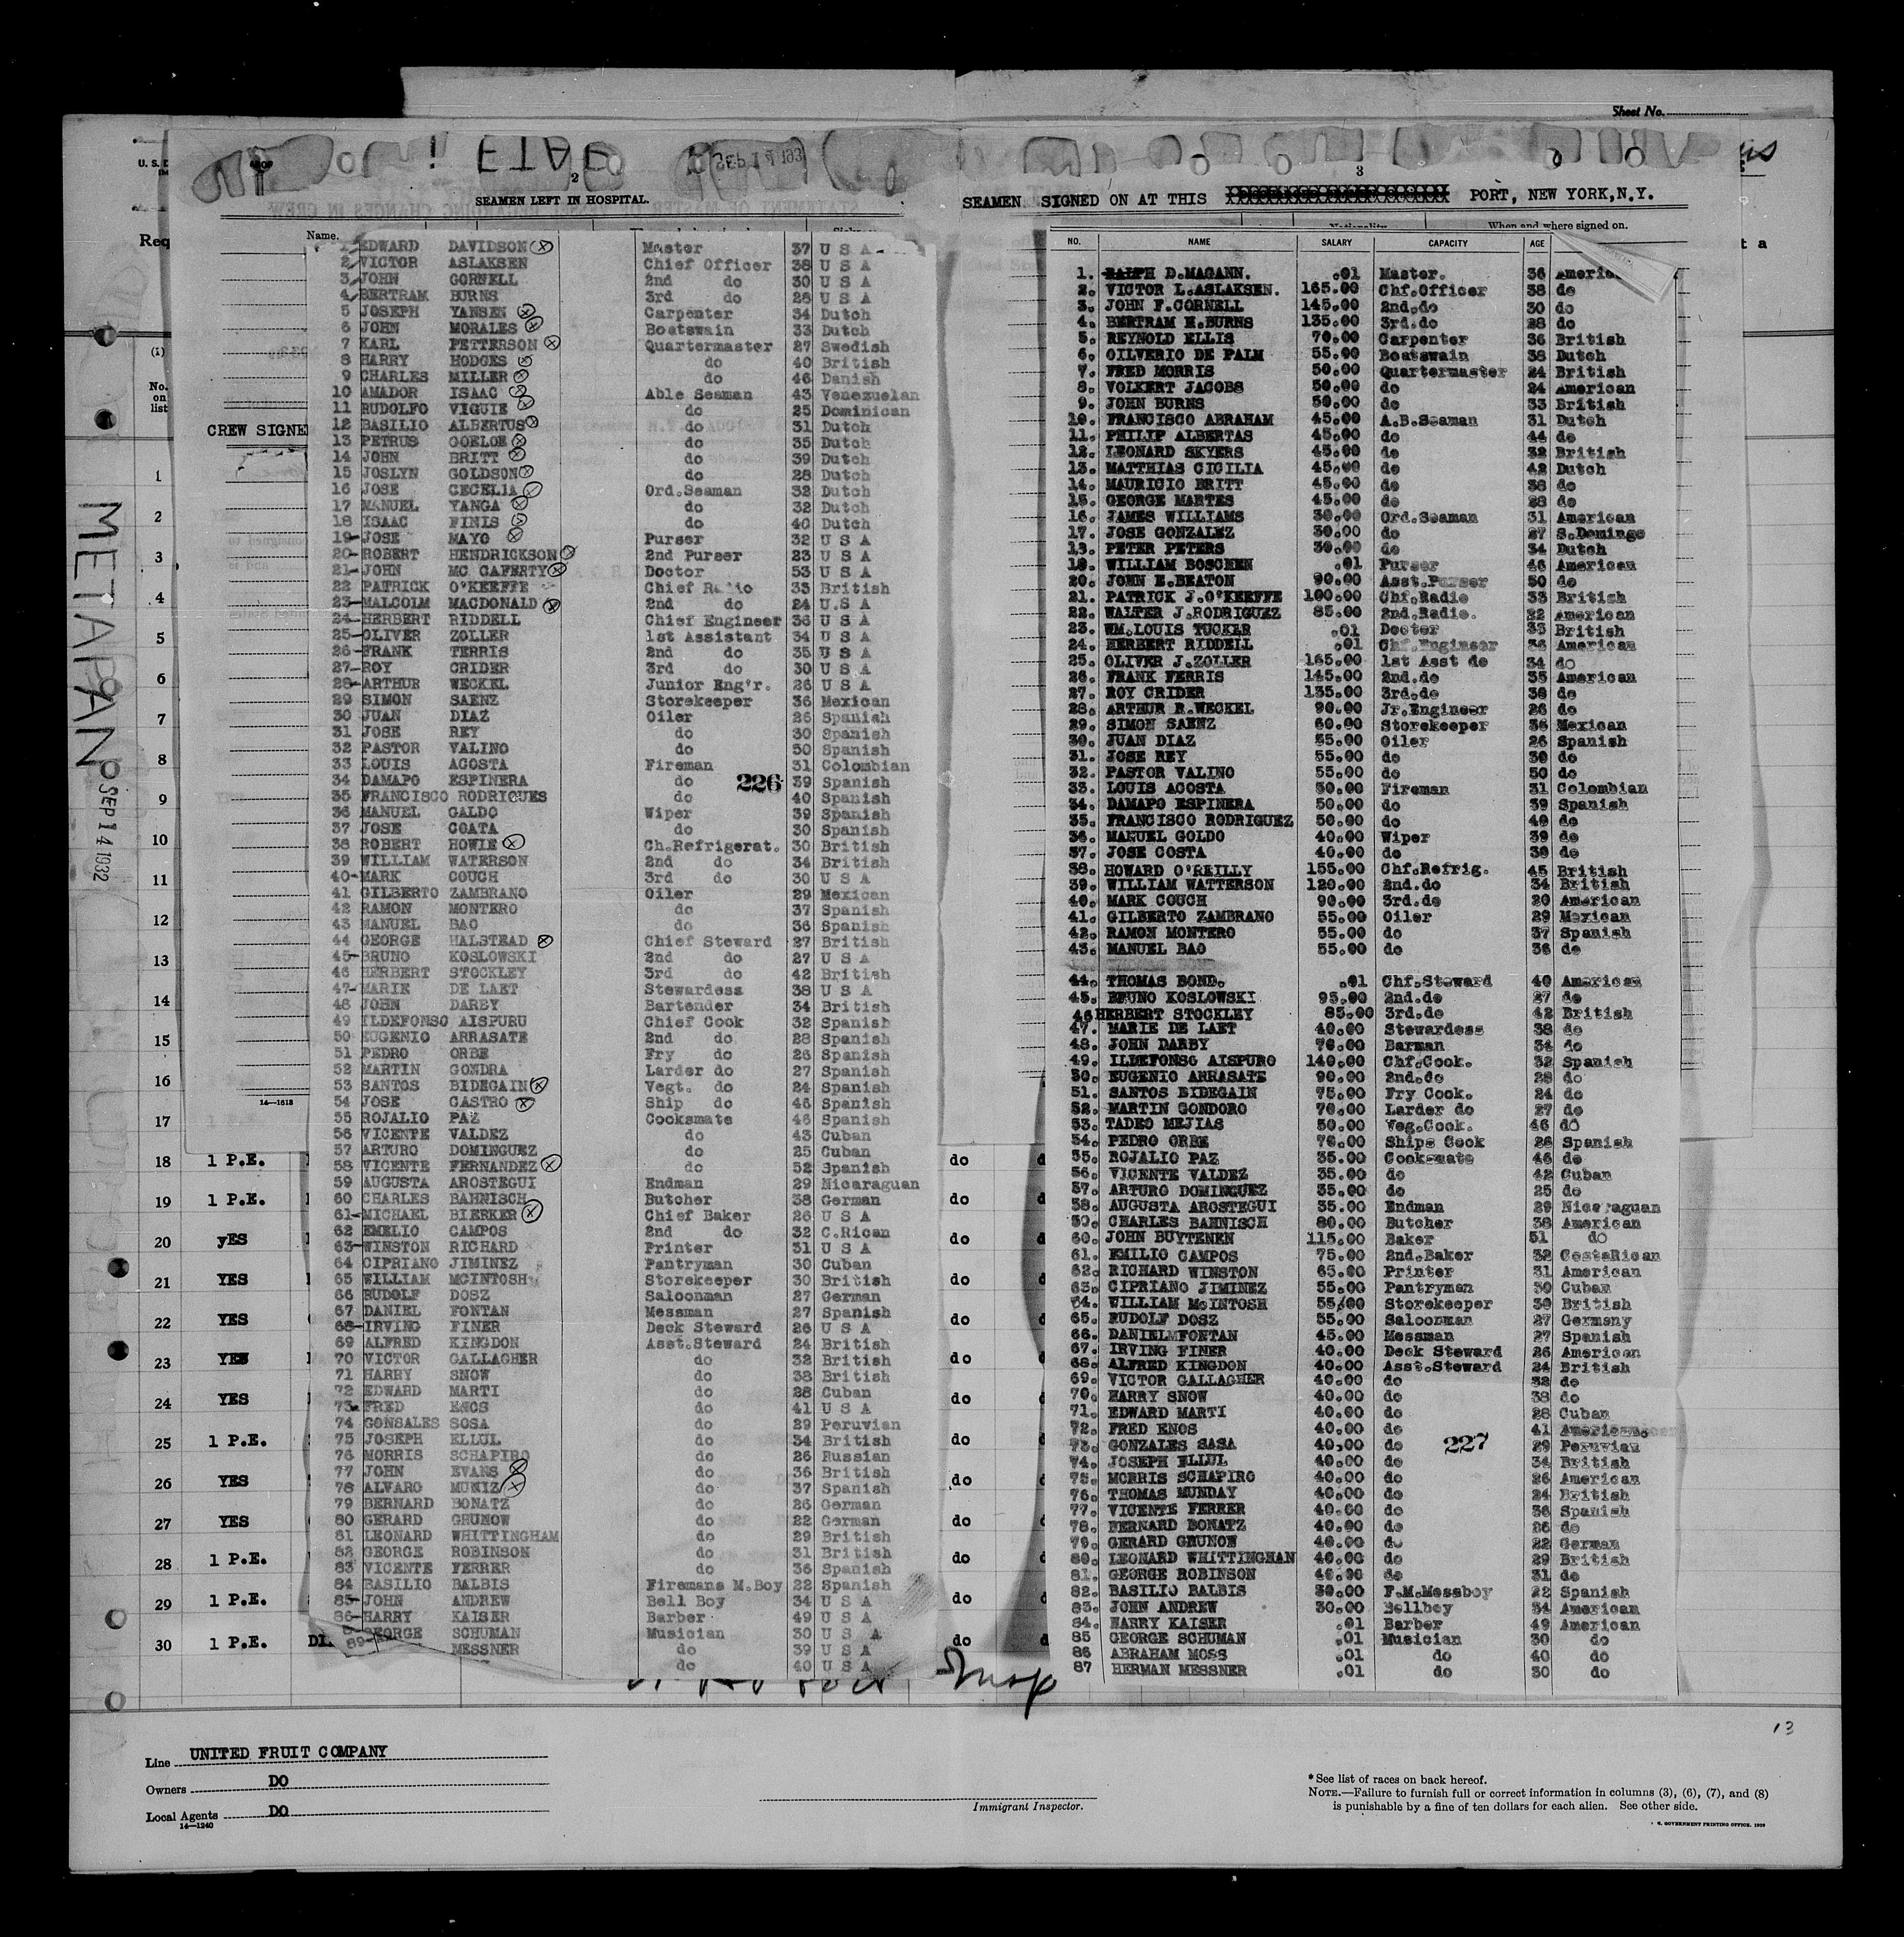 Sheet No.
U. S. D
2
SEP 14 193
3
SEAMEN LEFT IN HOSPITAL.
SEAMEN SIGNED ON AT THIS PORT, NEW YORK,N.Y.
Req
Name.
Nationality
When and where signed on.
t a
(1)
No. on list
CREW SIGNE
METAPAN
SEP 14 1932
1 EDWARD DAVIDSON Master 37 U S A
2 VICTOR ASLAKSEN Chief Officer 38 U S A
3 JOHN CORNELL 2nd do 30 U S A
4 BERTRAM BURNS 3rd do 28 U S A
5 JOSEPH YANSEN Carpenter 34 Dutch
6 JOHN MORALES Boatswain 33 Dutch
7 KARL PETTERSON Quartermaster 27 Swedish
8 HARRY HODGES do 40 British
9 CHARLES MILLER do 46 Danish
10 AMADOR ISAAC Able Seaman 43 Venezuelan
11 RUDOLFO VIGUIE do 25 Dominican
12 BASILIO ALBERTUS do 31 Dutch
13 PETRUS GOELOE do 35 Dutch
14 JOHN BRITT do 39 Dutch
15 JOSLYN GOLDSON do 28 Dutch
16 JOSE CECELIA Ord.Seaman 32 Dutch
17 MANUEL YANGA do 32 Dutch
18 ISAAC FINIS do 40 Dutch
19 JOSE MAYO Purser 32 U S A
20 ROBERT HENDRICKSON 2nd Purser 23 U S A
21 JOHN MC CAFERTY Doctor 53 U S A
22 PATRICK O'KEEFFE Chief Radio 33 British
23 MALCOLM MACDONALD 2nd do 24 U.S A
24 HERBERT RIDDELL Chief Engineer 36 U S A
25 OLIVER ZOLLER 1st Assistant 34 U S A
26 FRANK TERRIS 2nd do 35 U S A
27 ROY CRIDER 3rd do 30 U S A
28 ARTHUR WECKEL Junior Eng'r. 26 U S A
29 SIMON SAENZ Storekeeper 36 Mexican
30 JUAN DIAZ Oiler 26 Spanish
31 JOSE REY do 30 Spanish
32 PASTOR VALINO do 50 Spanish
33 LOUIS ACOSTA Fireman 31 Colombian
34 DAMAPO ESPINERA do 226 39 Spanish
35 FRANCISCO RODRIGUES do 40 Spanish
36 MANUEL GALDO Wiper 39 Spanish
37 JOSE COATA do 30 Spanish
38 ROBERT HOWIE Ch.Refrigerat. 30 British
39 WILLIAM WATERSON 2nd do 34 British
40 MARK COUCH 3rd do 30 U S A
41 GILBERTO ZAMBRANO Oiler 29 Mexican
42 RAMON MONTERO do 37 Spanish
43 MANUEL BAO do 36 Spanish
44 GEORGE HALSTEAD Chief Steward 27 British
45 BRUNO KOSLOWSKI 2nd do 27 U S A
46 HERBERT STOCKLEY 3rd do 42 British
47 MARIE DE LAET Stewardess 38 U S A
48 JOHN DARBY Bartender 34 British
49 ILDEFONSO AISPURU Chief Cook 32 Spanish
50 EUGENIO ARRASATE 2nd do 28 Spanish
51 PEDRO ORBE Fry do 26 Spanish
52 MARTIN GONDRA Larder do 27 Spanish
53 SANTOS BIDEGAIN Vegt. do 24 Spanish
54 JOSE CASTRO Ship do 46 Spanish
55 ROJALIO PAZ Cooksmate 46 Spanish
56 VICENTE VALDEZ do 43 Cuban
57 ARTURO DOMINGUEZ do 25 Cuban
58 VICENTE FERNANDEZ do 52 Spanish
59 AUGUSTA AROSTEGUI Endman 29 Nicaraguan
60 CHARLES BAHNISCH Butcher 38 German
61 MICHAEL BIERKER Chief Baker 26 U S A
62 EMELIO CAMPOS 2nd do 32 C.Rican
63 WINSTON RICHARD Printer 31 U S A
64 CIPRIANO JIMINEZ Pantryman 30 Cuban
65 WILLIAM MCINTOSH Storekeeper 30 British
66 RUDOLF DOSZ Saloonman 27 German
67 DANIEL FONTAN Messman 27 Spanish
68 IRVING FINER Deck Steward 26 U S A
69 ALFRED KINGDON Asst.Steward 24 British
70 VICTOR GALLAGHER do 32 British
71 HARRY SNOW do 38 British
72 EDWARD MARTI do 28 Cuban
73 FRED ENOS do 41 U S A
74 GONSALES SOSA do 29 Peruvian
75 JOSEPH ELLUL do 34 British
76 MORRIS SCHAPIRO do 26 Russian
77 JOHN EVANS do 36 British
78 ALVARO MUNIZ do 37 Spanish
79 BERNARD BONATZ do 26 German
80 GERARD GRUNOW do 22 German
81 LEONARD WHITTINGHAM do 29 British
82 GEORGE ROBINSON do 31 British
83 VICENTE FERRER do 36 Spanish
84 BASILIO BALBIS Firemans M.Boy 22 Spanish
85 JOHN ANDREW Bell Boy 34 U S A
86 HARRY KAISER Barber 49 U S A
GEORGE SCHUMAN Musician 30 U S A
89 MESSNER do 39 U S A
do 40 U S A
NO. NAME SALARY CAPACITY AGE
1. RALPH D.MAGANN. .01 Master. 36 America
2. VICTOR L.ASLAKSEN. 165.00 Chf.Officer 38 do
3. JOHN F.CORNELL 145.00 2nd.do 30 do
4. BERTRAM H.BURNS 135.00 3rd.do 28 do
5. REYNOLD ELLIS 70.00 Carpenter 36 British
6. OILVERIO DE PALM 55.00 Boatswain 38 Dutch
7. FRED MORRIS 50.00 Quartermaster 24 British
8. VOLKERT JACOBS 50.00 do 24 American
9. JOHN BURNS 50.00 do 33 British
10. FRANCISCO ABRAHAM 45.00 A.B.Seaman 31 Dutch
11. PHILIP ALBERTAS 45.00 do 44 do
12. LEONARD SKYERS 45.00 do 32 British
13. MATTHIAS CICILIA 45.00 do 42 Dutch
14. MAURICIO BRITT 45.00 do 38 do
15. GEORGE MARTES 45.00 do 28 do
16. JAMES WILLIAMS 30.00 Ord.Seaman 31 American
17. JOSE GONZALEZ 30.00 do 27 S.Domingo
18. PETER PETERS 30.00 do 34 Dutch
19. WILLIAM BOSCHEN .01 Purser 46 American
20. JOHN E.BEATON 90.00 Asst.Purser 50 do
21. PATRICK J.O'KEEFFE 100.00 Chf.Radio 33 British
22. WALTER J.RODRIGUEZ 85.00 2nd.Radio. 22 American
23. WM.LOUIS TUCKER .01 Doctor 33 British
24. HERBERT RIDDELL .01 Chf.Engineer 36 American
25. OLIVER J.ZOLLER 165.00 1st Asst do 34 do
26. FRANK FERRIS 145.00 2nd.do 35 American
27. ROY CRIDER 135.00 3rd.do 38 do
28. ARTHUR R.WECKEL 90.00 Jr.Engineer 26 do
29. SIMON SAENZ 60.00 Storekeeper 36 Mexican
30. JUAN DIAZ 55.00 Oiler 26 Spanish
31. JOSE REY 55.00 do 30 do
32. PASTOR VALINO 55.00 do 50 do
33. LOUIS ACOSTA 50.00 Fireman 31 Colombian
34. DAMAPO ESPINERA 50.00 do 39 Spanish
35. FRANCISCO RODRIGUEZ 50.00 do 40 do
36. MANUEL GOLDO 40.00 Wiper 39 do
37. JOSE COSTA 40.00 do 30 do
38. HOWARD O'REILLY 155.00 Chf.Refrig. 45 British
39. WILLIAM WATTERSON 120.00 2nd.do 34 British
40. MARK COUCH 90.00 3rd.do 20 American
41. GILBERTO ZAMBRANO 55.00 Oiler 29 Mexican
42. RAMON MONTERO 55.00 do 37 Spanish
43. MANUEL BAO 55.00 do 36 do
44. THOMAS BOND. .01 Chf.Steward 40 American
45. BRUNO KOSLOWSKI 95.00 2nd.do 27 do
46 HERBERT STOCKLEY 85.00 3rd.do 42 British
47. MARIE DE LAET 40.00 Stewardess 38 do
48. JOHN DARBY 70.00 Barman 34 do
49. ILDEFONSO AISPURO 140.00 Chf.Cook. 32 Spanish
50. EUGENIO ARRASATE 90.00 2nd.do 28 do
51. SANTOS BIDEGAIN 75.00 Fry Cook. 24 do
52. MARTIN GONDORO 70.00 Larder do 27 do
53. TADEO MEJIAS 50.00 Veg.Cook. 46 do
54. PEDRO ORBE 70.00 Ships Cook 26 Spanish
55. ROJALIO PAZ 35.00 Cooksmate 46 do
56. VICENTE VALDEZ 35.00 do 42 Cuban
57. ARTURO DOMINGUEZ 35.00 do 25 do
58. AUGUSTA AROSTEGUI 35.00 Endman 29 Nicaraguan
59. CHARLES BAHNISCH 80.00 Butcher 38 American
60. JOHN BUYTENEN 115.00 Baker 51 do
61. EMILIO CAMPOS 75.00 2nd.Baker 32 CostaRican
62. RICHARD WINSTON 65.00 Printer 31 American
63. CIPRIANO JIMINEZ 55.00 Pantryman 30 Cuban
64. WILLIAM McINTOSH 55/00 Storekeeper 30 British
65. RUDOLF DOSZ 55.00 Saloonman 27 Germany
66. DANIELMFONTAN 45.00 Messman 27 Spanish
67. IRVING FINER 40.00 Deck Steward 26 American
68. ALFRED KINGDON 40.00 Asst.Steward 24 British
69. VICTOR GALLAGHER 40.00 do 32 do
70. HARRY SNOW 40.00 do 38 do
71. EDWARD MARTI 40.00 do 28 Cuban
72. FRED ENOS 40.00 do 41 American
73. GONZALES SASA 40.00 do 227 29 Peruvian
74. JOSEPH ELLUL 40.00 do 34 British
75. MORRIS SCHAPIRO 40.00 do 26 American
76. THOMAS MUNDAY 40.00 do 24 British
77. VICENTE FERRER 40.00 do 36 Spanish
78. BERNARD BONATZ 40.00 do 26 do
79. GERARD GRUNOW 40.00 do 22 German
80. LEONARD WHITTINGHAN 40.00 do 29 British
81. GEORGE ROBINSON 40.00 do 31 do
82. BASILIO BALBIS 30.00 F.M.Messboy 22 Spanish
83. JOHN ANDREW 30.00 Bellboy 34 American
84. HARRY KAISER .01 Barber 49 American
85 GEORGE SCHUMAN .01 Musician 30 do
86 ABRAHAM MOSS .01 do 40 do
87 HERMAN MESSNER .01 do 30 do
1
2
3
4
5
6
7
8
9
10
11
12
13
14
15
16
14—1613
17
18 1 P.E. do d
19 1 P.E. do d
20 yES do d
21 YES do d
22 YES do d
23 YES do d
24 YES do d
25 1 P.E. do d
26 YES do d
27 YES do d
28 1 P.E. do d
29 1 P.E. do d
30 1 P.E. DI do d
13
Line UNITED FRUIT COMPANY
Owners DO
Local Agents DO
14—1240
Immigrant Inspector.
* See list of races on back hereof.
NOTE.—Failure to furnish full or correct information in columns (3), (6), (7), and (8)
is punishable by a fine of ten dollars for each alien. See other side.
GOVERNMENT PRINTING OFFICE. 1929